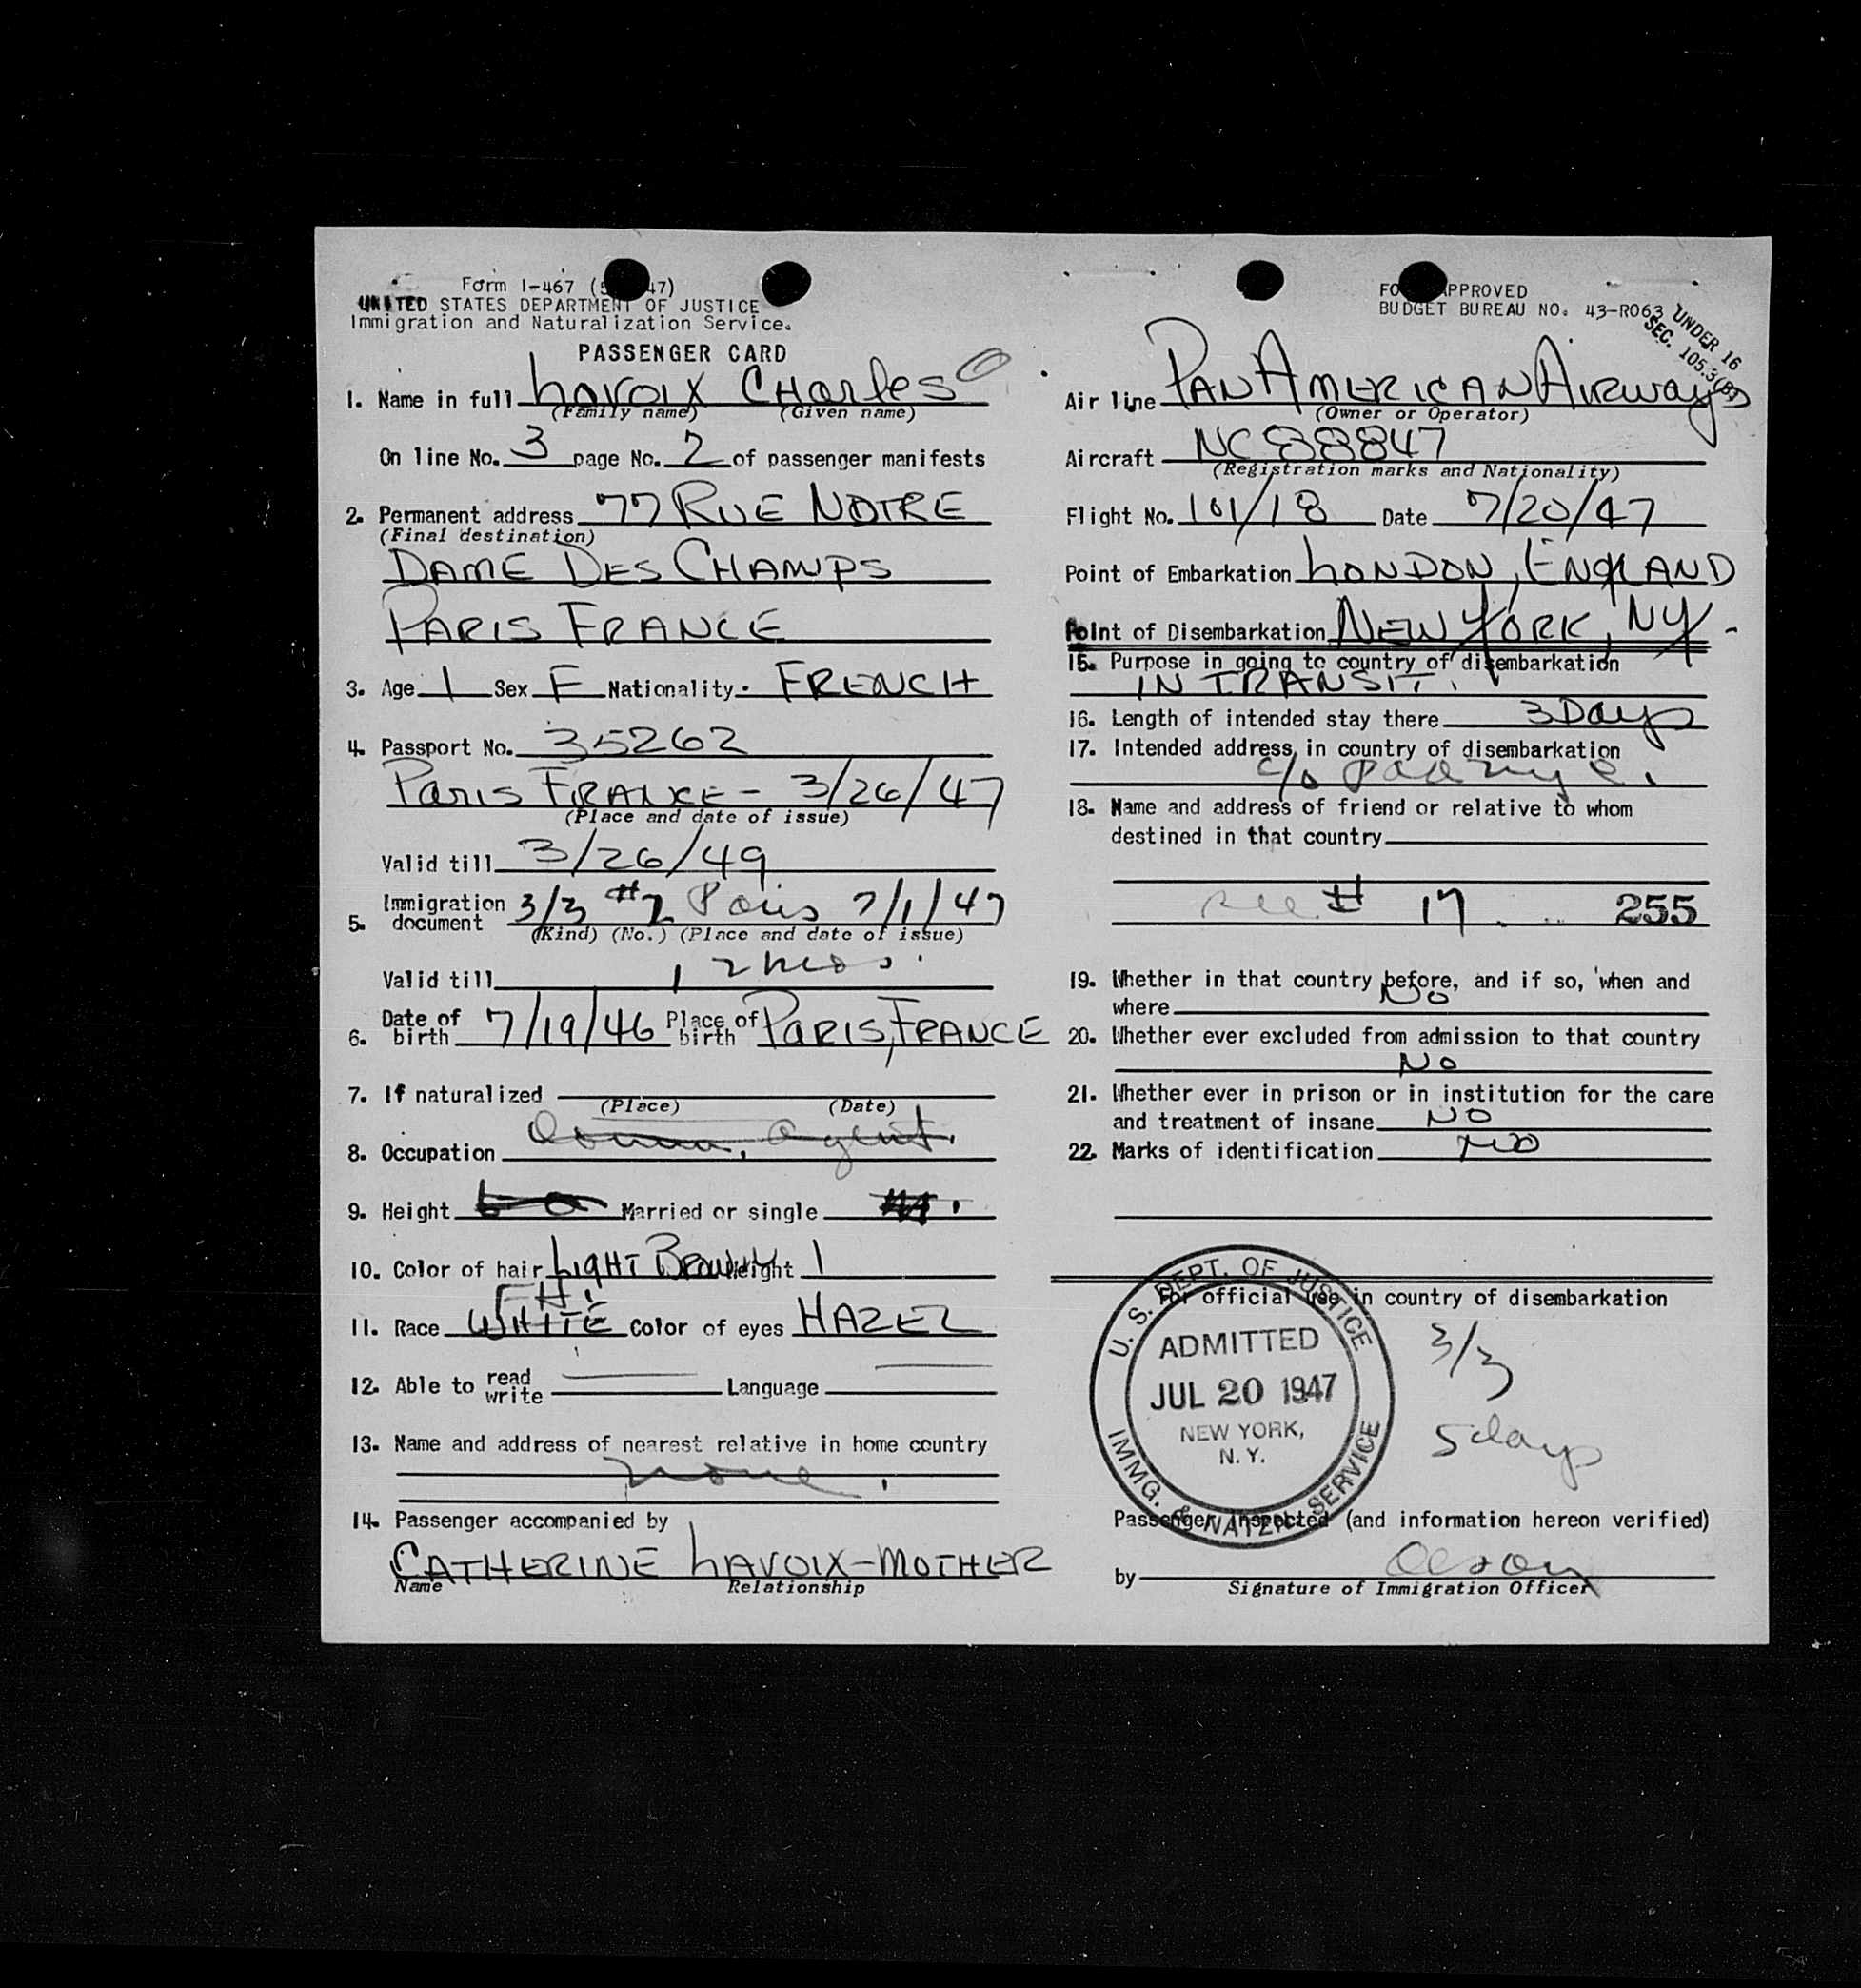 Form I-467 ( 47)
UNITED STATES DEPARTMENT OF JUSTICE
Immigration and Naturalization Service.
PASSENGER CARD
1. Name in full Lavoix Charles
(Family name) (Given name)
On line No. 3 page No. 2 of passenger manifests
2. Permanent address 77 RUE NOTRE
(Final destination)
DAME DES CHAMPS
PARIS FRANCE
3. Age 1 Sex F Nationality FRENCH
4. Passport No. 35262
PARIS FRANCE - 3/26/47
(Place and date of issue)
Valid till 3/26/49
5. Immigration document 3/3 #2 Paris 7/1/47
(Kind) (No.) (Place and date of issue)
Valid till 12 mos.
6. Date of birth 7/19/46 Place of birth PARIS, FRANCE
7. If naturalized
(Place) (Date)
8. Occupation Agent.
9. Height Married or single
10. Color of hair LIGHT BROWN Weight 1
11. Race WHITE Color of eyes HAZEL
12. Able to read write Language
13. Name and address of nearest relative in home country
none.
14. Passenger accompanied by
CATHERINE LAVOIX-MOTHER
Name Relationship
FO APPROVED
BUDGET BUREAU NO. 43-R063
UNDER 16
SEC. 105.3(B)
Air line PAN AMERICAN AIRWAYS
(Owner or Operator)
Aircraft NC 88847
(Registration marks and Nationality)
Flight No. 101/18 Date 7/20/47
Point of Embarkation LONDON, ENGLAND
Point of Disembarkation NEW YORK, NY.
15. Purpose in going to country of disembarkation
IN TRANSIT.
16. Length of intended stay there 3 Days
17. Intended address in country of disembarkation
c/o
18. Name and address of friend or relative to whom
destined in that country
see # 17 255
19. Whether in that country before, and if so, when and
where No
20. Whether ever excluded from admission to that country
No
21. Whether ever in prison or in institution for the care
and treatment of insane NO
22. Marks of identification NO
For official use in country of disembarkation
U. S. DEPT. OF JUSTICE
ADMITTED
JUL 20 1947
NEW YORK,
N. Y.
IMMG. & NATZN. SERVICE
3/3
5 days
Passenger inspected (and information hereon verified)
by Olson
Signature of Immigration Officer